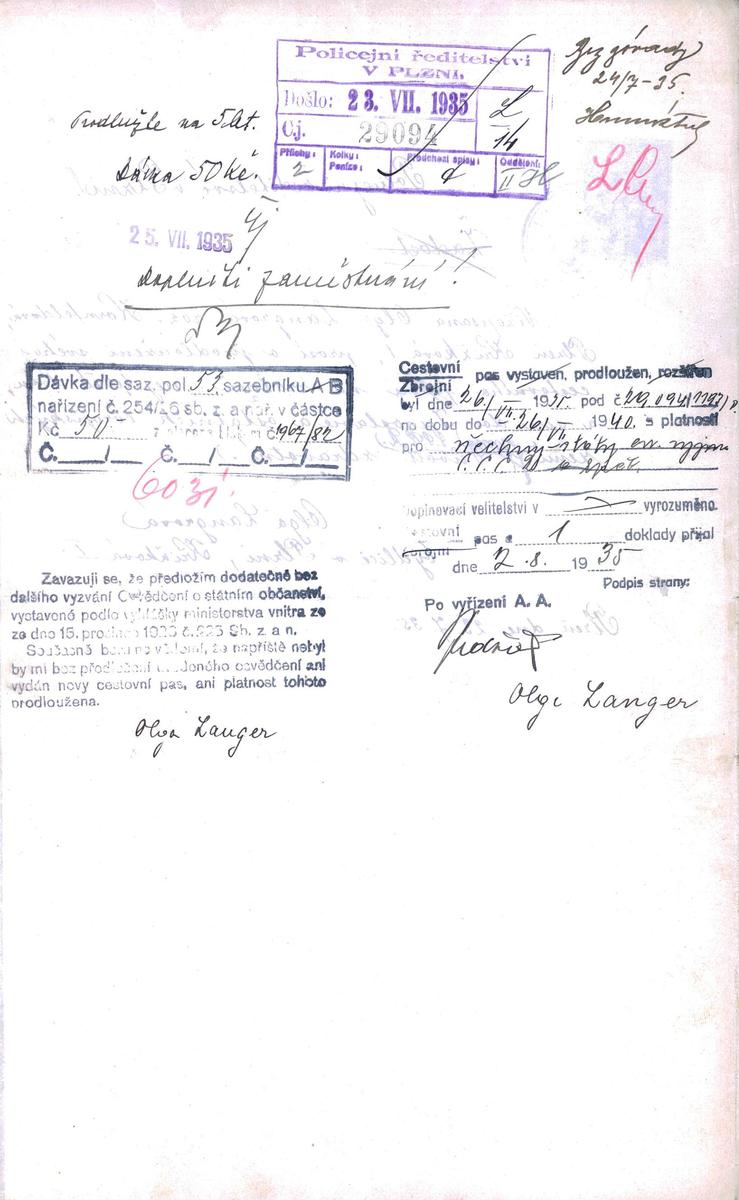 Policejní ředitelství
V PLZNI.
Došlo: 23. VII. 1935
Čj. 29094
L
14
Přílohy: 2
Kolky:
Peníze:
Předchozí spisy:
Oddělení: II
24/7-35.
Prodlužte na 5 let.
Dávka 50 Kč.
25. VII. 1935
Doplniti zaměstnání!
Dávka dle saz. pol 53 sazebníku A B
nařízení č. 254/26 sb. z. a nař. v částce
Kč 50.- č 1967/82
Č.___/___ Č.___/___ Č.___/___
603
Zavazuji se, že předložím dodatečně bez
dalšího vyzvání Osvědčení o státním občanství,
vystavené podle vyhlášky ministerstva vnitra ze
ze dne 15. prosince 1923 č. 225 Sb. z. a n.
Současně beru na vědomí, že napříště nebyl
by mi bez předložení uvedeného osvědčení ani
vydán nový cestovní pas, ani platnost tohoto
prodloužena.
Olga Langer
Cestovní pas vystaven, prodloužen, rozšířen
Zbrojní
byl dne 26/VII. 1935. pod č 29.094
na dobu do 26/VII. 1940. s platností
pro všechny státy
a zpět
Doplňovací velitelství v vyrozuměno.
Cestovní
Zbrojní pas a 1 doklady přijal
dne 2.8. 1935
Podpis strany:
Po vyřízení A. A.
Olga Langer